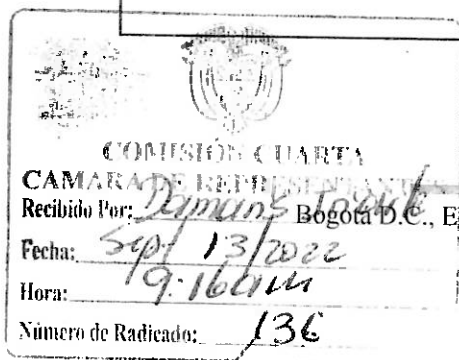 COMISIÓN CUARTA
CAMARA DE REPRESENTANTES
Recibido Por: Damaris Bogotá D.C., E
Fecha: Sep/ 13/2022
Hora: 9:16am
Número de Radicado: 136